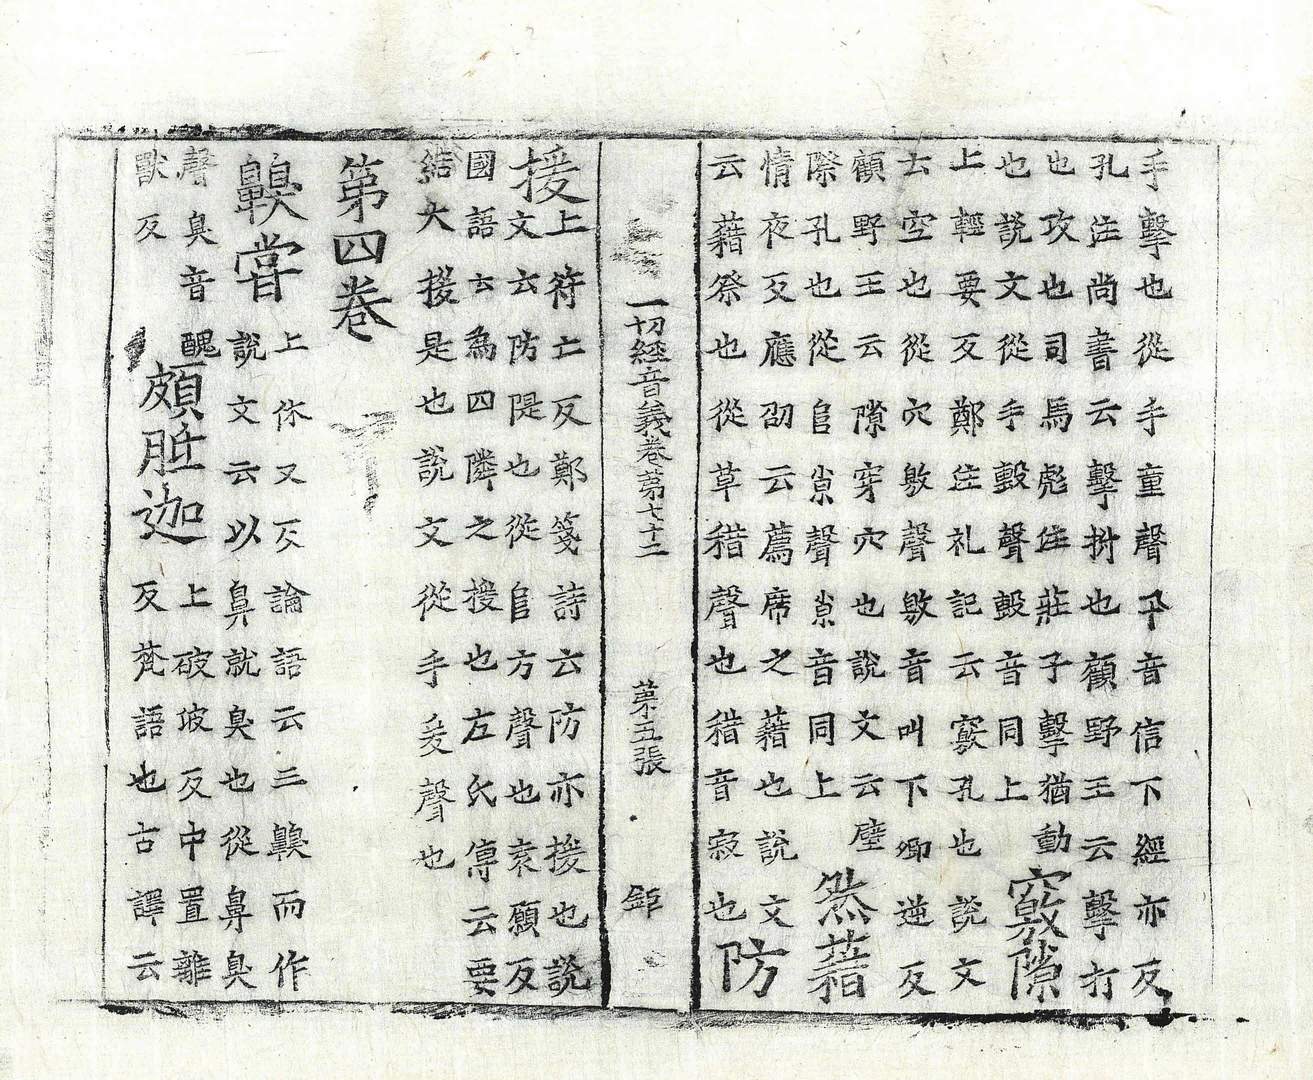 手擊也從手童聲𠔃音信下經亦反
孔注尚書云擊拊也顧野王云擊打
也攻也司馬彪注莊子擊猶動
也說文從手毄聲毄音同上
竅隙
上輕要反鄭注礼記云竅孔也說文
云空也從穴敫聲敫音叫下卿逆反
顧野王云隙穿穴也說文云壁
際孔也從𨸏𡭴聲𡭴音同上
然藉
情夜反應劭云薦席之藉也說文
云藉祭也從草耤聲也耤音寂也
防
一切經音義卷第七十二 第五張 鉅
援
上符亡反鄭箋詩云防亦援也說
文云防隄也從𨸏方聲也袁願反
國語云為四隣之援也左氏傳云要
結大援是也說文從手爰聲也
第四卷
齅甞
上休又反論語云三齅而作
說文云以鼻就臭也從鼻臭
聲臭音醜
獸反
頗胝迦
上破波反中置離
反梵語也古譯云